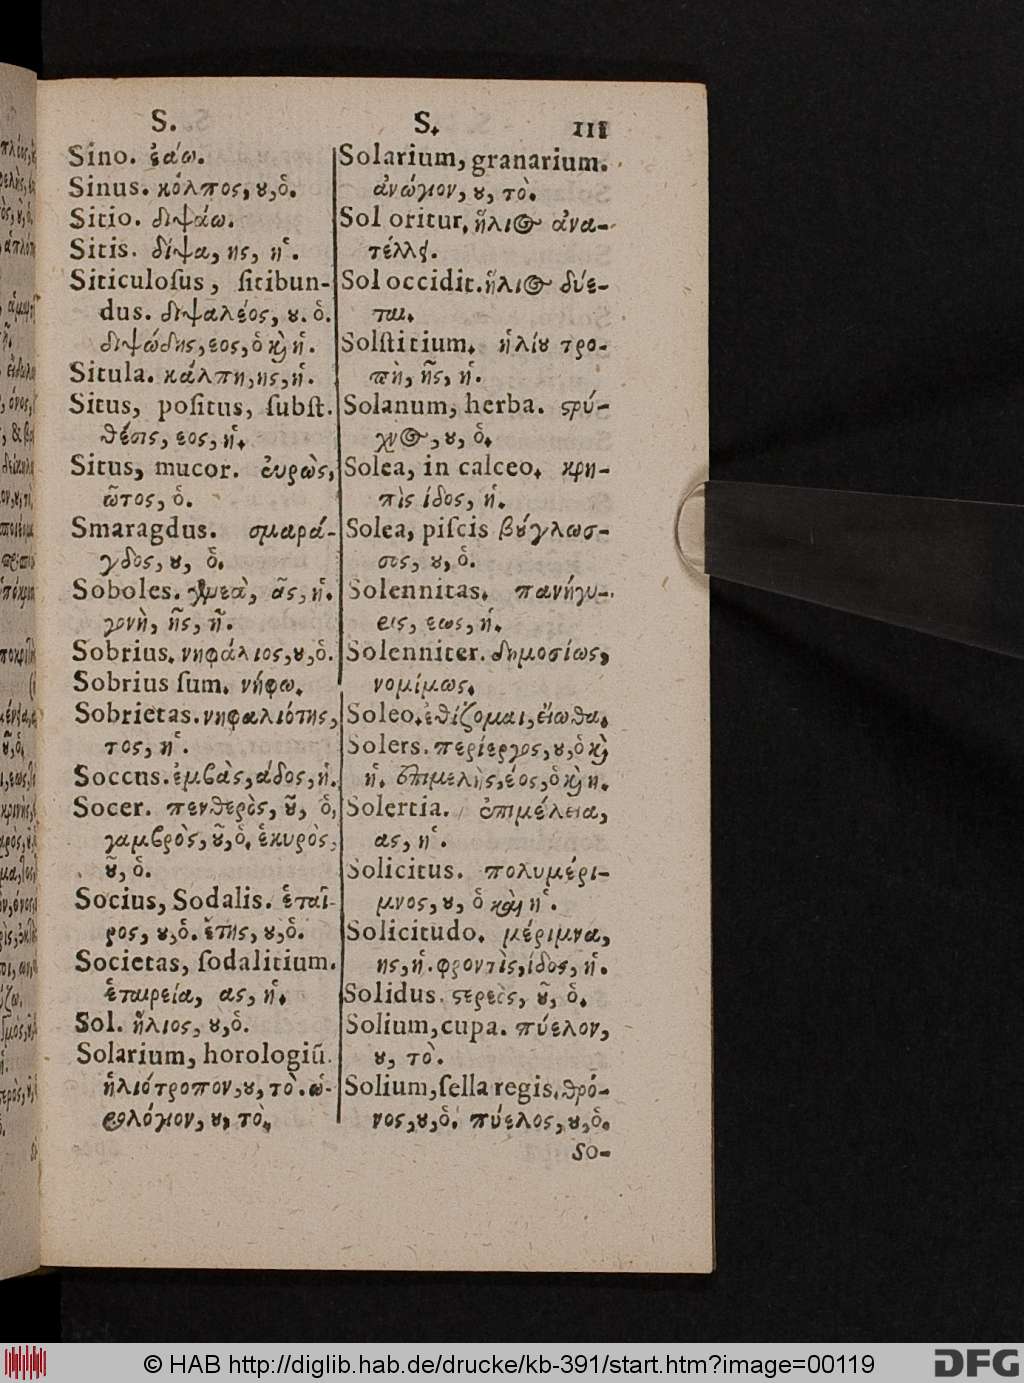 S.
Sino. ἐάω.
Sinus. κόλπος, ȣ, ὁ.
Sitio. διψάω.
Sitis. δίψα, ης, ἡ.
Siticuloſus, ſitibun-
dus. διψαλέος, ȣ. ὁ.
διψώδης, εος, ὁ ϗ ἡ.
Situla. κάλπη, ης, ἡ.
Situs, poſitus, ſubſt.
θέσις, εος, ἡ.
Situs, mucor. ἐυρὼς,
ῶτος, ὁ.
Smaragdus. σμαρά-
γδος, ȣ, ὁ.
Soboles. ᾶς, ἡ.
γονὴ, ῆς, ῆ.
Sobrius. νηφάλιος, ȣ, ὁ.
Sobrius ſum. νήφω.
Sobrietas. νηφαλιότης,
τος, ἡ.
Soccus. ἐμβὰς, άδος, ἡ.
Socer. πενθερὸς, ȣ͂, ὁ,
γαμβρὸς, ȣ͂, ὁ. ἑκυρὸς,
ȣ͂, ὁ.
Socius, Sodalis. ἑταῖ-
ρος, ȣ, ὁ. ἔτης, ȣ, ὁ.
Societas, ſodalitium.
ἑταιρεία, ας, ἡ.
Sol. ἥλιος, ȣ, ὁ.
Solarium, horologiũ.
ἡλιότροπον, ȣ, τὸ. ὡ-
ρολόγιον, ȣ, τὸ.
S. 111
Solarium, granarium.
ἀνώγιον, ȣ, τὸ.
Sol oritur. ἥλιος ἀνα-
τέλλει.
Sol occidit. ἥλιος δύε-
ται.
Solſtitium. ἡλίȣ τρο-
πὴ, ῆς, ἡ.
Solanum, herba. ϛρύ-
χνος, ȣ, ὁ.
Solea, in calceo. κρη-
πὶς ίδος, ἡ.
Solea, piſcis βύγλωσ-
σις, ȣ, ὁ.
Solennitas. πανήγυ-
ρις, εως, ἡ.
Solenniter. δημοσίως,
νομίμως.
Soleo. ἐθίζομαι, εἴωθα.
Solers. περίεργος, ȣ, ὁ ϗ
ἡ. ἐπιμελὴς, έος, ὁ ϗ η.
Solertia. ἐπιμέλεια,
ας, ἡ.
Solicitus. πολυμέρι-
μνος, ȣ, ὁ καὶ ἡ.
Solicitudo. μέριμνα,
ης, ἡ. φροντὶς, ίδος, ἡ.
Solidus. ϛερεὸς, ȣ͂, ὁ.
Solium, cupa. πύελον,
ȣ, τὸ.
Solium, ſella regis. θρό-
νος, ȣ, ὁ. πύελος, ȣ, ὁ.
So-
© HAB http://diglib.hab.de/drucke/kb-391/start.htm?image=00119
DFG